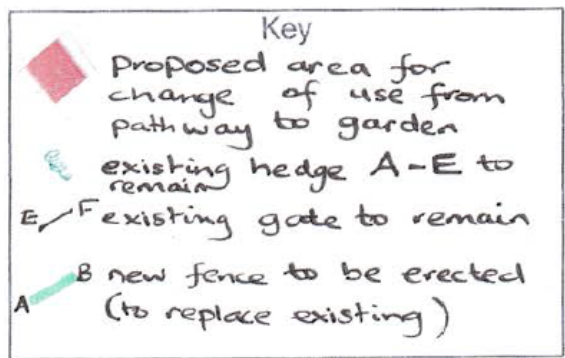 Key
Proposed area for
change of use from
pathway to garden
existing hedge A-E to
remain
E F existing gate to remain
B new fence to be erected
A (to replace existing)